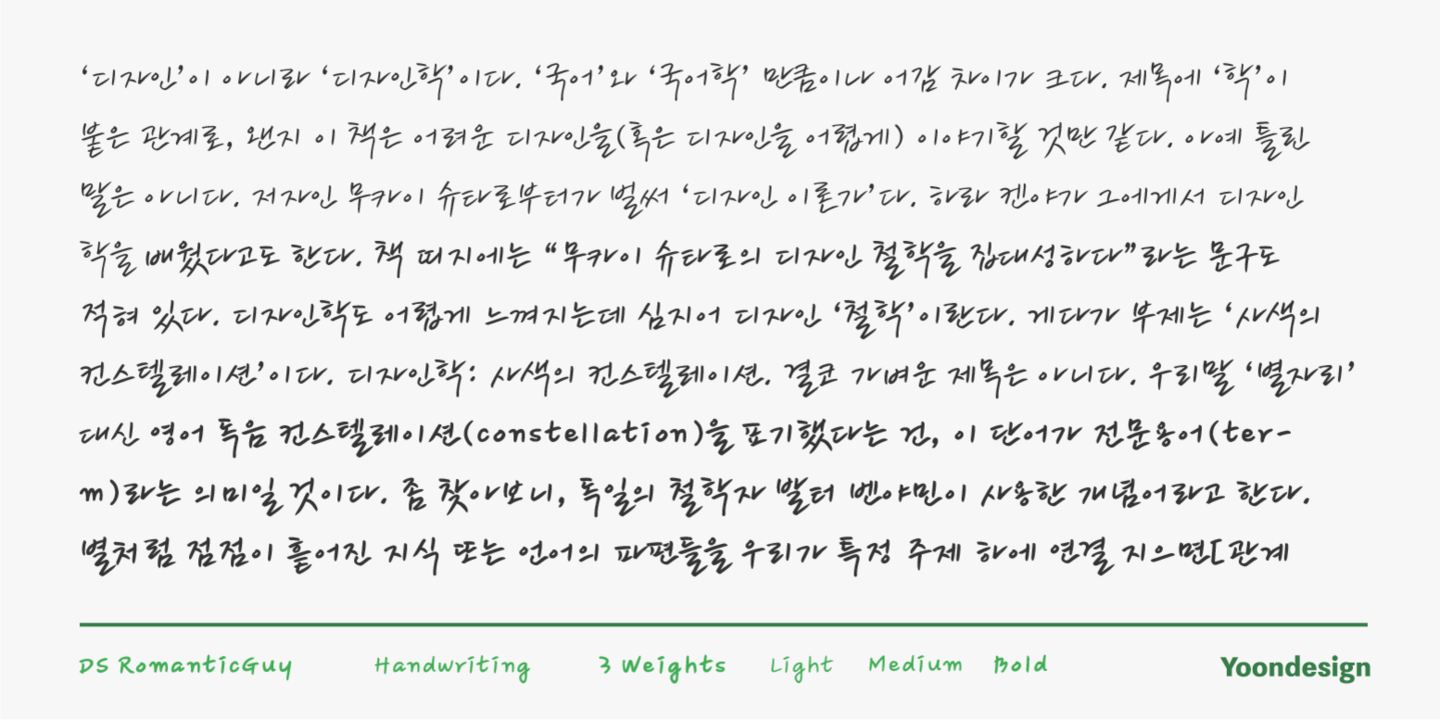 ‘디자인’이 아니라 ‘디자인학’이다. ‘국어’와 ‘국어학’ 만큼이나 어감 차이가 크다. 제목에 ‘학’이
붙은 관계로, 왠지 이 책은 어려운 디자인을(혹은 디자인을 어렵게) 이야기할 것만 같다. 아예 틀린
말은 아니다. 저자인 무카이 슈타로부터가 벌써 ‘디자인 이론가’다. 하라 켄야가 그에게서 디자인
학을 배웠다고도 한다. 책 띠지에는 “무카이 슈타로의 디자인 철학을 집대성하다”라는 문구도
적혀 있다. 디자인학도 어렵게 느껴지는데 심지어 디자인 ‘철학’이란다. 게다가 부제는 ‘사색의
컨스텔레이션’이다. 디자인학: 사색의 컨스텔레이션. 결코 가벼운 제목은 아니다. 우리말 ‘별자리’
대신 영어 독음 컨스텔레이션(constellation)을 표기했다는 건, 이 단어가 전문용어(ter-
m)라는 의미일 것이다. 좀 찾아보니, 독일의 철학자 발터 벤야민이 사용한 개념어라고 한다.
별처럼 점점이 흩어진 지식 또는 언어의 파편들을 우리가 특정 주제 하에 연결 지으면[관계
DS RomanticGuy Handwriting 3 Weights Light Medium Bold Yoondesign